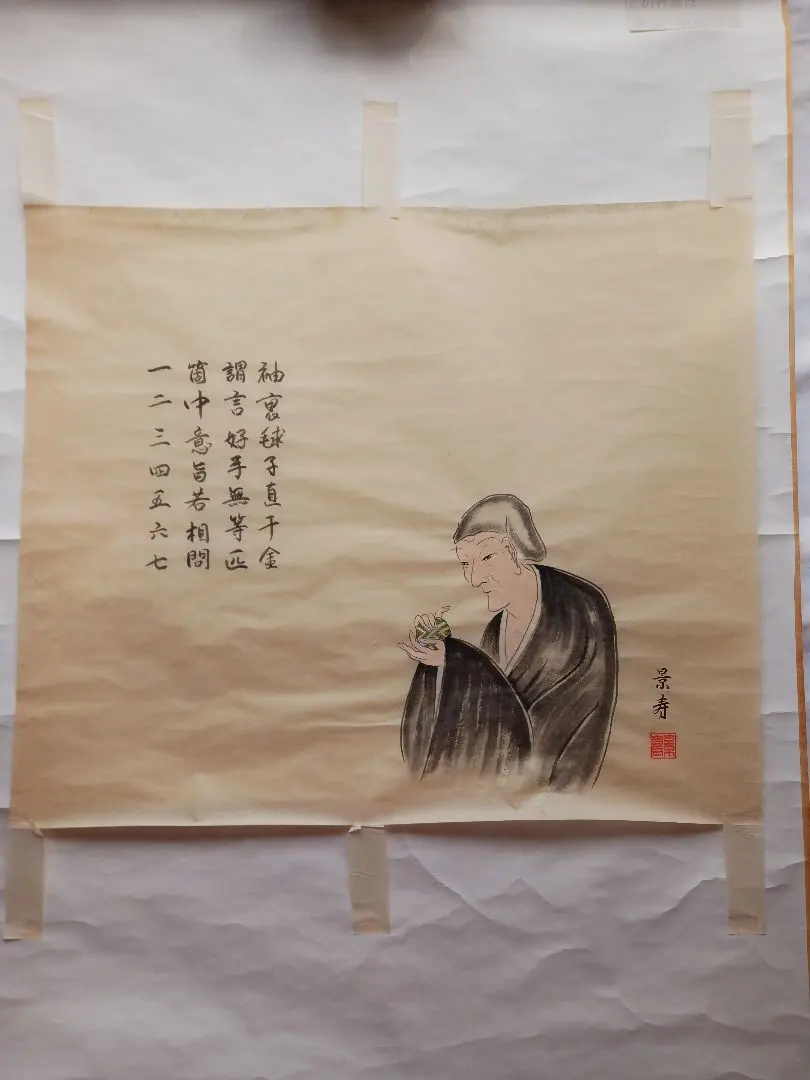 袖裏毬子直千金
謂言好手無等匹
箇中意旨若相問
一二三四五六七
景寿